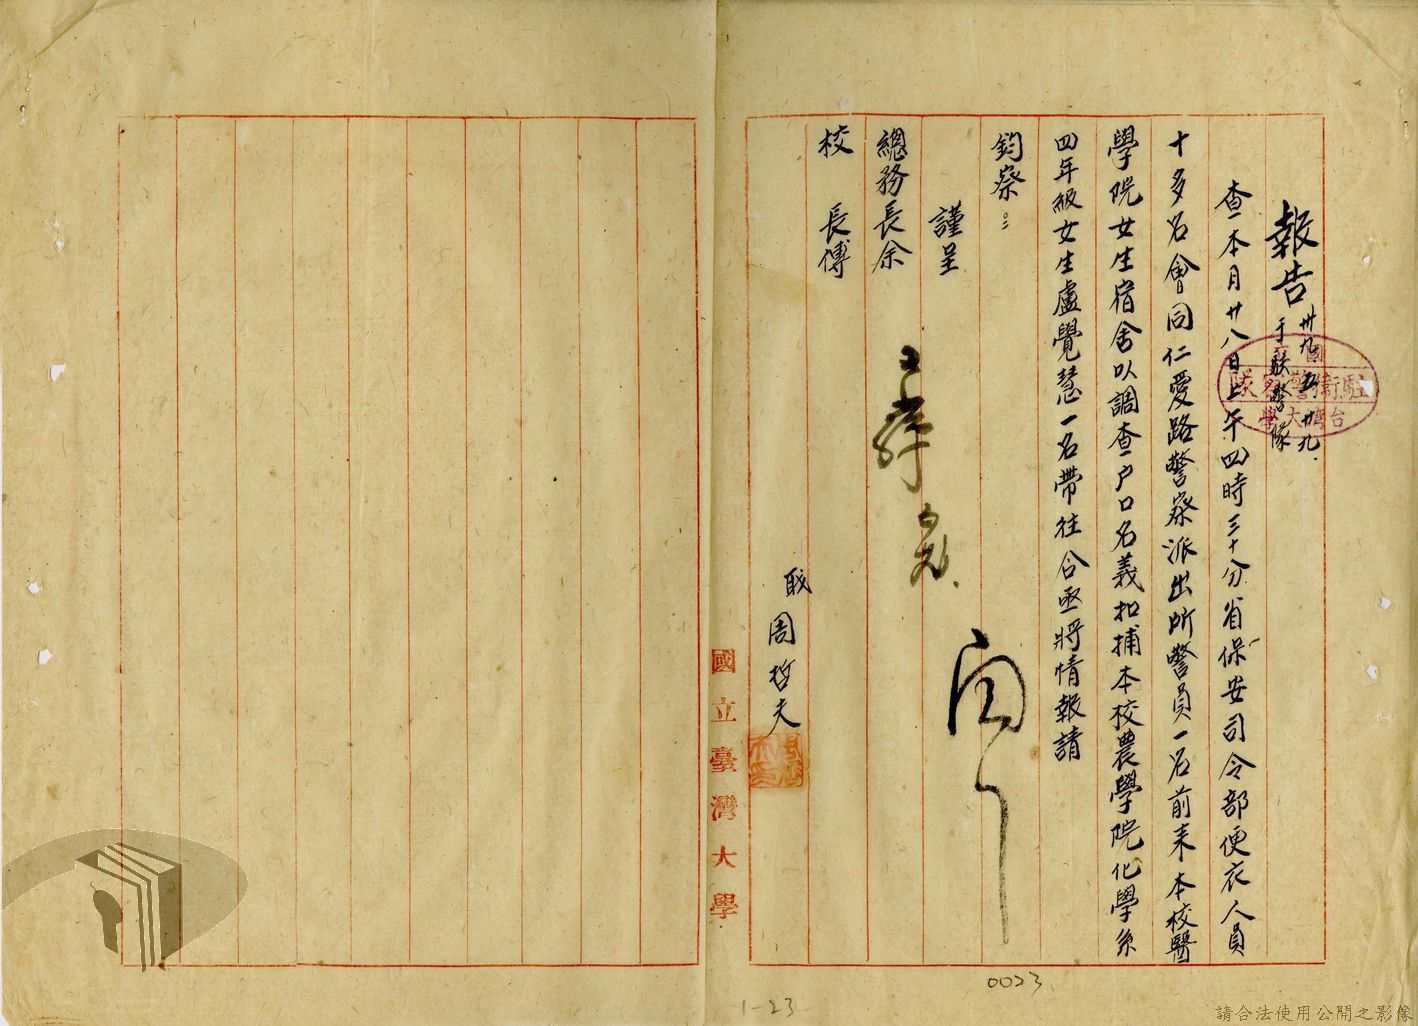 報告 卅九、五、廿九.
于駐警隊
國立
駐衛警察隊
台灣大學
查本月廿八日上午四時三十分省保安司令部便衣人員
十多名會同仁愛路警察派出所警員一名前来本校醫
學院女生宿舍以調查户口名義扣捕本校農學院化學系
四年級女生盧覺慧一名帶往合亟將情報請
鈞察。
謹呈
總務長余
校長傅
職周哲夫
國立臺灣大學
0023
1-23
請合法使用公開之影像